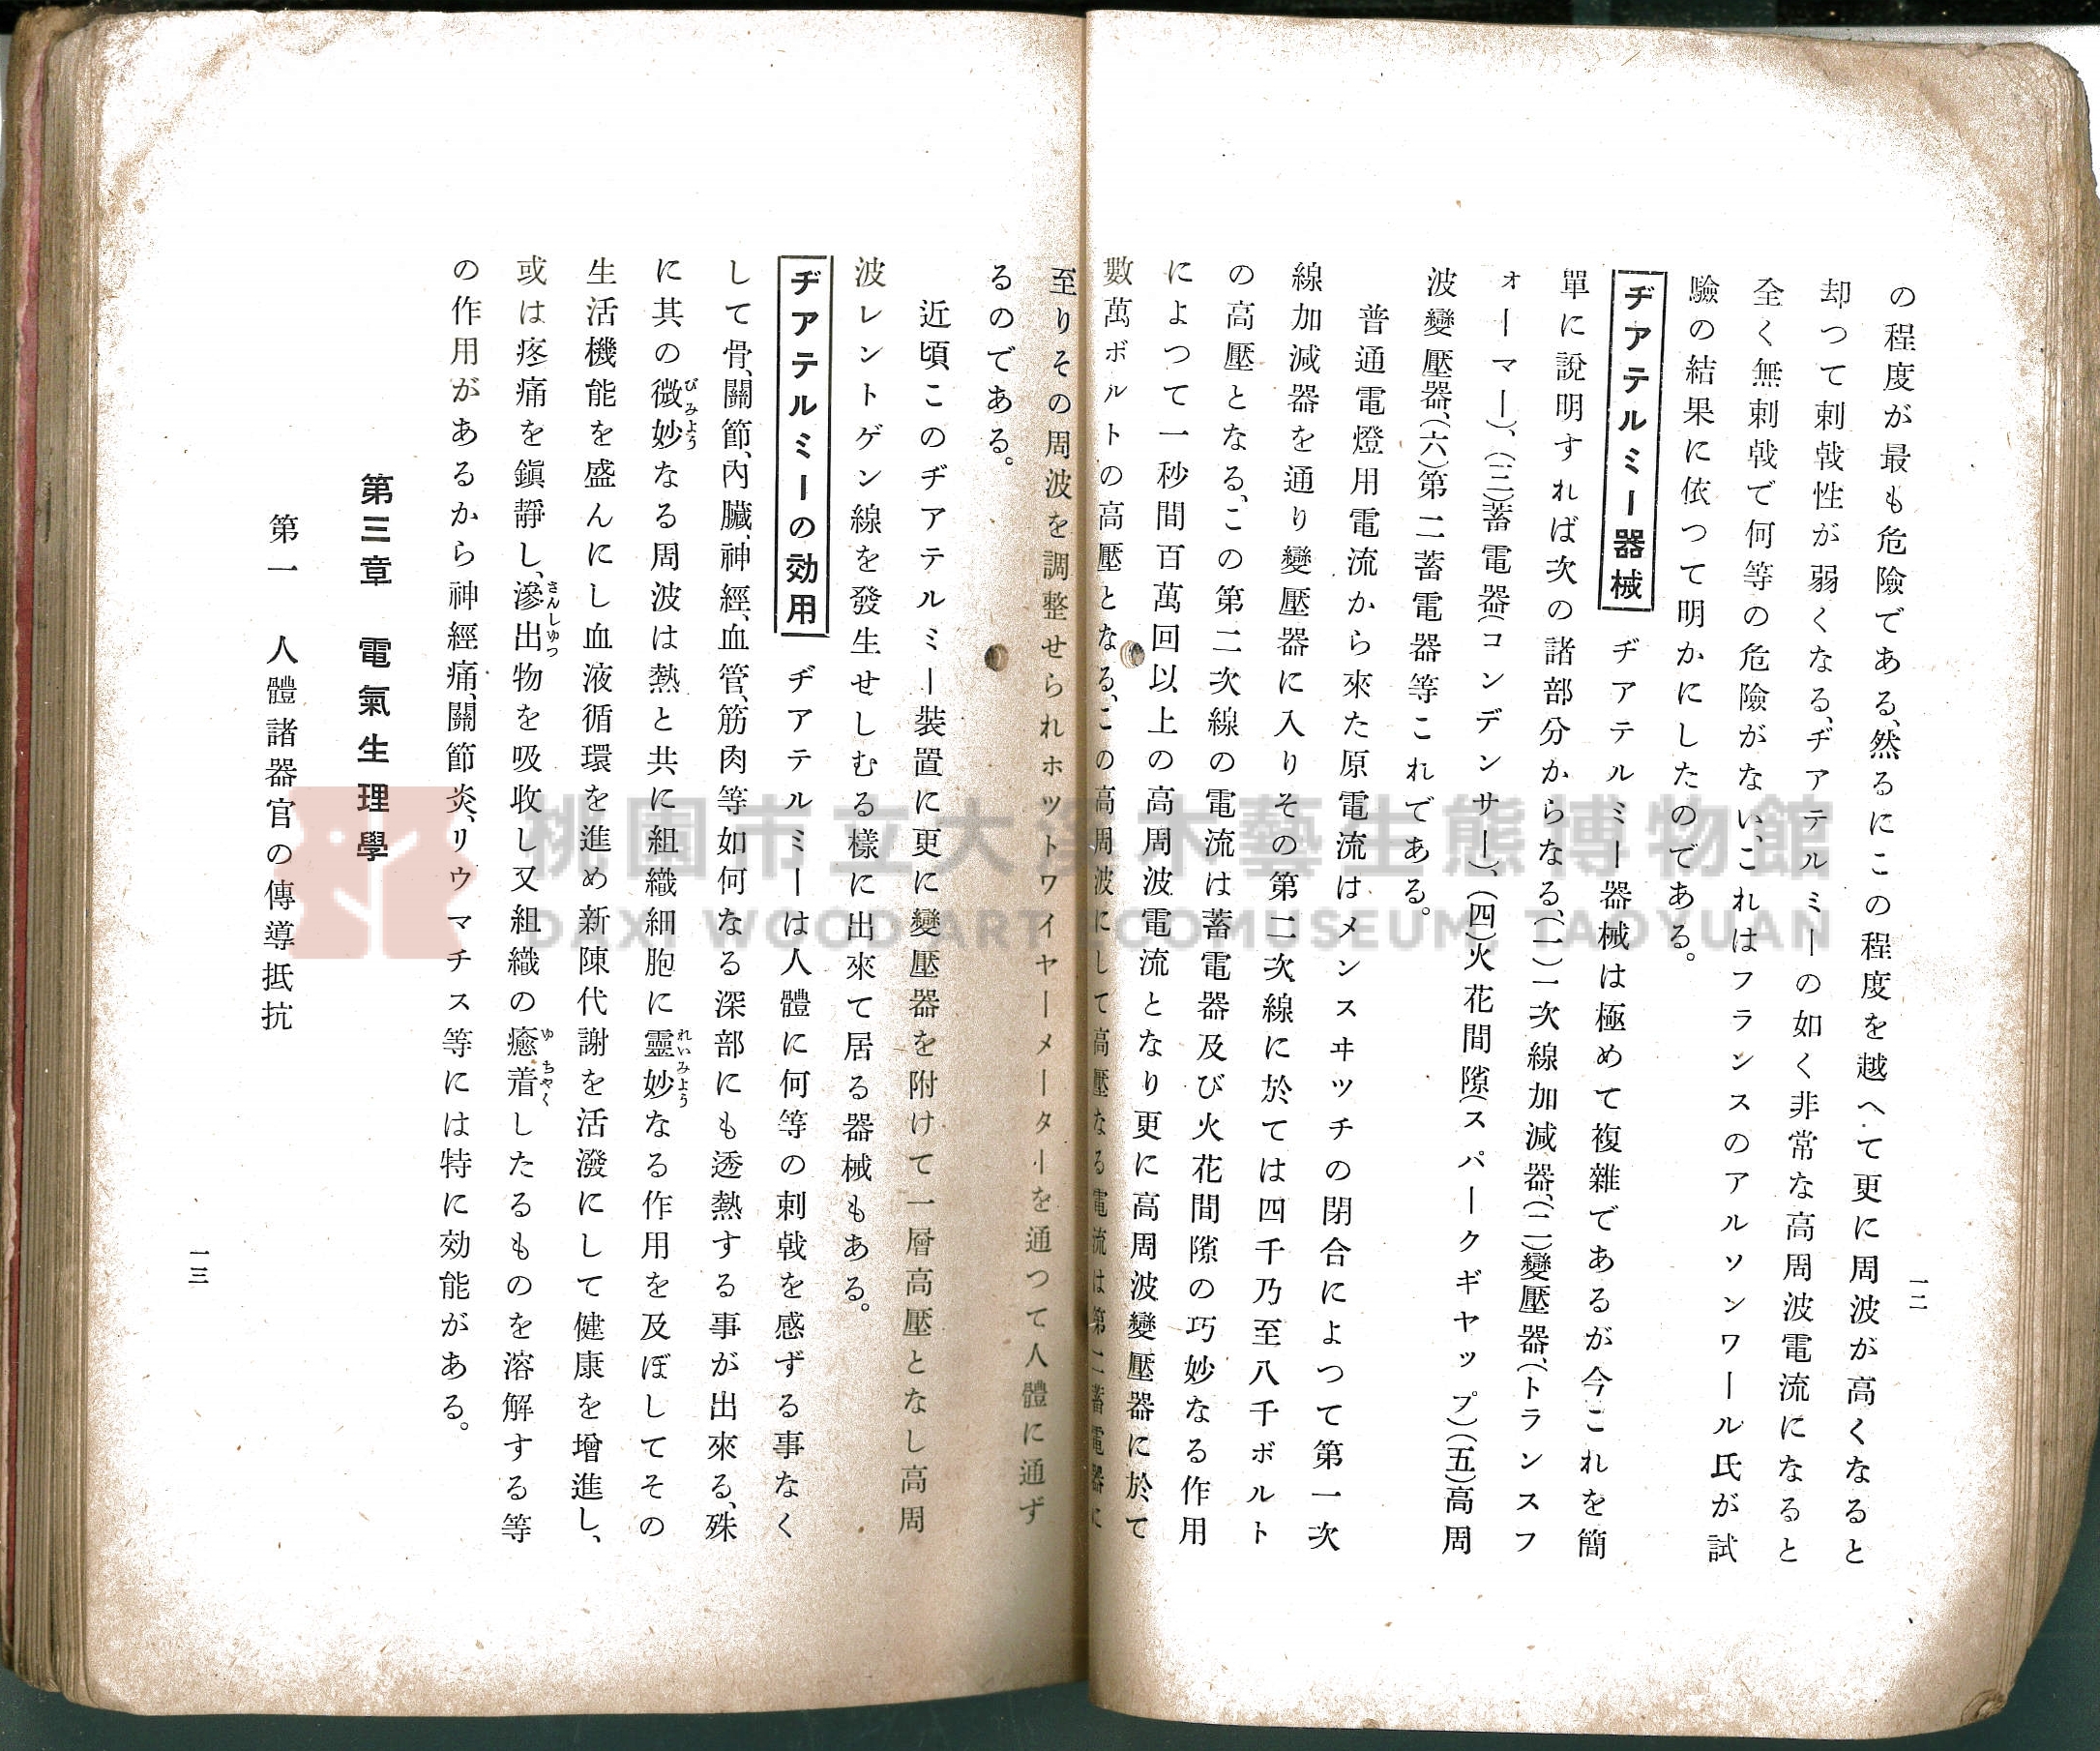 一二
の程度が最も危險である、然るにこの程度を越へて更に周波が高くなると
却つて刺戟性が弱くなる、ヂアテルミーの如く非常な高周波電流になると
全く無刺戟で何等の危險がない、これはフランスのアルソンワール氏が試
驗の結果に依つて明かにしたのである。
ヂアテルミー器械 ヂアテルミー器械は極めて複雜であるが今これを簡
單に說明すれば次の諸部分からなる、(一)一次線加減器、(二)變壓器、(トランスフ
ォーマー)、(三)蓄電器(コンデンサー)、(四)火花間隙(スパークギヤップ)(五)高周
波變壓器、(六)第二蓄電器等これである。
普通電燈用電流から來た原電流はメンスヰッチの閉合によつて第一次
線加減器を通り變壓器に入りその第二次線に於ては四千乃至八千ボルト
の高壓となる、この第二次線の電流は蓄電器及び火花間隙の巧妙なる作用
によつて一秒間百萬回以上の高周波電流となり更に高周波變壓器に於て
數萬ボルトの高壓となる、この高周波にして高壓なる電流は第二蓄電器に
至りその周波を調整せられホツトワイヤーメーターを通つて人體に通ず
るのである。
近頃このヂアテルミー裝置に更に變壓器を附けて一層高壓となし高周
波レントゲン線を發生せしむる樣に出來て居る器械もある。
ヂアテルミーの効用 ヂアテルミーは人體に何等の刺戟を感ずる事なく
して骨、關節、內臟、神經、血管、筋肉等如何なる深部にも透熱する事が出來る、殊
に其の微妙なる周波は熱と共に組織細胞に靈妙なる作用を及ぼしてその
生活機能を盛んにし血液循環を進め新陳代謝を活潑にして健康を增進し、
或は疼痛を鎭靜し、滲出物を吸收し又組織の癒着したるものを溶解する等
の作用があるから神經痛、關節炎、リウマチス等には特に効能がある。
第三章 電氣生理學
第一 人體諸器官の傳導抵抗
一三
桃園市立大溪木藝生態博物館
DAXI WOOD ART ECOMUSEUM, TAOYUAN